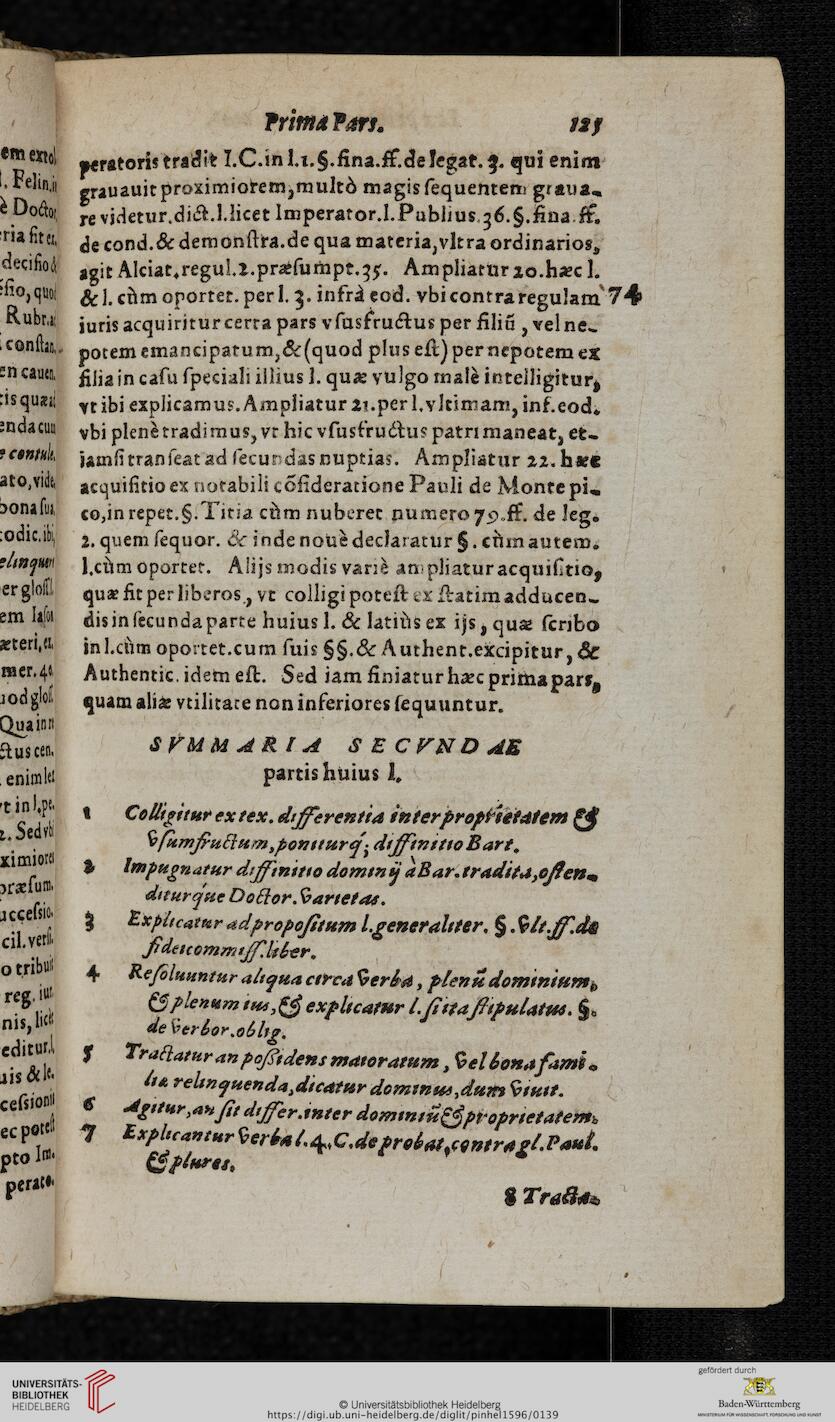 Prima Pars. 125
peratoris tradit I.C.in l.1.§.fina.ff.de legat.3. qui enim
grauauit proximiorem,multò magis sequentem graua-
re videtur.dict.l.licet Imperator.l.Publius.36.§.fina.ff.
de cond.& demonstra.de qua materia,vltra ordinarios,
agit Alciat.regul.2.præsumpt.35. Ampliatur 20.hæc l.
& l. cùm oportet. per l. 3. infrà eod. vbi contra regulam 74
iuris acquiritur certa pars vsusfructus per filiũ, vel ne-
potem emancipatum,&(quod plus est) per nepotem ex
filia in casu speciali illius l. quæ vulgo malè intelligitur,
vt ibi explicamus.Ampliatur 21.per l.vltimam, inf.eod.
vbi plenè tradimus, vt hic vsusfructus patri maneat, et-
iamsi transeat ad secundas nuptias. Ampliatur 22. hæc
acquisitio ex notabili cõsideratione Pauli de Monte pi-
co,in repet.§.Titia cùm nuberet numero 79.ff. de leg.
2. quem sequor. & inde nouè declaratur §. cùm autem.
l.cùm oportet. Alijs modis variè ampliatur acquisitio,
quæ fit per liberos, vt colligi potest ex statim adducen-
dis in secunda parte huius l. & latiùs ex ijs, quæ scribo
in l.cùm oportet.cum suis §§.& Authent.excipitur, &
Authentic. idem est. Sed iam finiatur hæc prima pars,
quam aliæ vtilitate non inferiores sequuntur.
SVMMARIA SECVNDAE
partis huius l.
1 Colligitur ex tex. differentia inter proprietatem &
vsumfructum,poniturq́; diffinitio Bart.
2 Impugnatur diffinitio dominij à Bar.tradita,osten-
diturq́ue Doctor.varietas.
3 Explicatur ad propositum l.generaliter. §.vlt.ff.de
fideicommiss.liber.
4 Resoluuntur aliqua circa verba, plenũ dominium,
& plenum ius,& explicatur l.si ita stipulatus. §.
de verbor.oblig.
5 Tractatur an possidens maioratum, vel bona fami-
liæ relinquenda,dicatur dominus,dum viuit.
6 Agitur,an sit differ.inter dominiũ & proprietatem.
7 Explicantur verba l.4.C.de probat.contra gl.Paul.
& plures.
8 Tracta-
UNIVERSITÄTS-
BIBLIOTHEK
HEIDELBERG
© Universitätsbibliothek Heidelberg
https://digi.ub.uni-heidelberg.de/diglit/pinhel1596/0139
gefördert durch
Baden-Württemberg
MINISTERIUM FÜR WISSENSCHAFT, FORSCHUNG UND KUNST